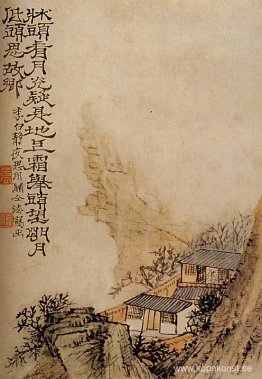 牀頭看月光疑是地上霜舉頭望朙月
低頭思故鄉
李白靜夜思用
www.kopakonst.se